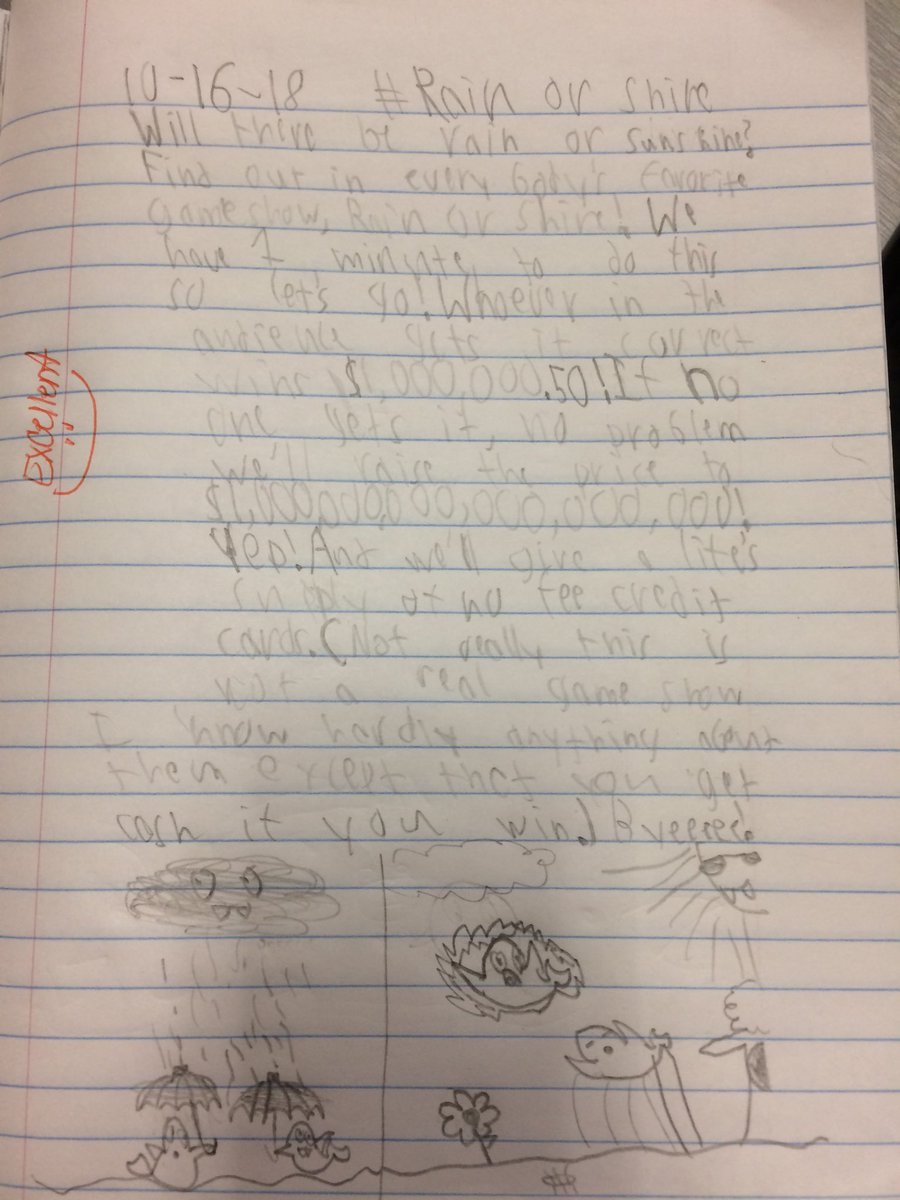 10-16-18 #Rain or shine
Will there be rain or sunshine?
Find out in every body's favorite
game show, Rain or Shine! We
have 7 minutes to do this
so let's go! Whoever in the
audience gets it correct
wins $1,000,000.50! If no
one gets it, no problem
we'll raise the price to
$1,000,000,000,000,000,000!
Yep! And we'll give a life's
supply of no fee credit
cards. (Not really this is
not a real game show
I know hardly anything about
them except that you get
cash if you win.) Byeeeee!
Excellent